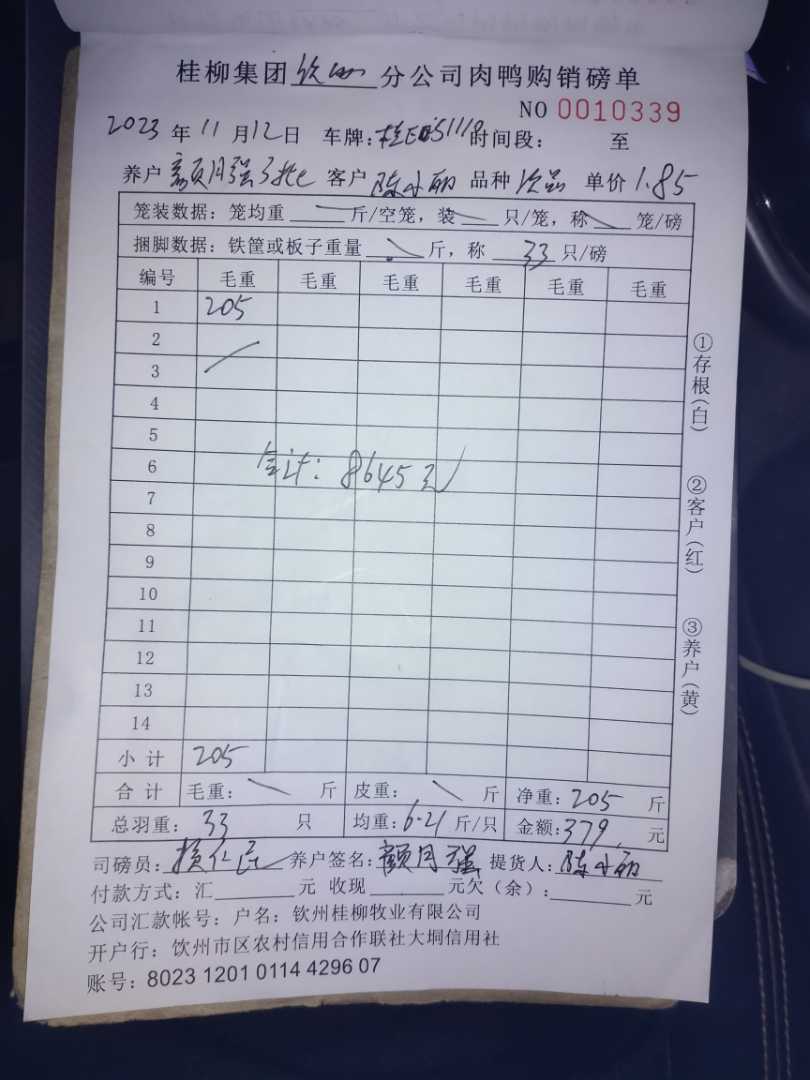 桂柳集团钦州分公司肉鸭购销磅单
NO 0010339
2023年11月12日 车牌: 时间段: 至
养户 客户 陈小丽 品种 次品 单价 1.85
笼装数据: 笼均重 斤/空笼, 装 只/笼, 称 笼/磅
捆脚数据: 铁筐或板子重量 斤, 称 33 只/磅
编号 毛重 毛重 毛重 毛重 毛重 毛重
1 205
2
3
4
5
6
合计: 8645元
7
8
9
10
11
12
13
14
小计 205
合计 毛重: 斤 皮重: 斤 净重: 205 斤
总羽重: 33 只 均重: 6.21 斤/只 金额: 379 元
司磅员: 养户签名: 提货人: 陈小丽
付款方式: 汇 元 收现 元欠(余): 元
公司汇款帐号: 户名: 钦州桂柳牧业有限公司
开户行: 饮州市区农村信用合作联社大垌信用社
账号: 8023 1201 0114 4296 07
①存根(白)
②客户(红)
③养户(黄)